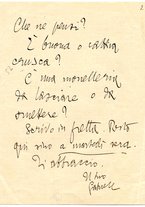 2
Che ne pensi?
È buona o cattiva
crusca?
È una monelleria
da lasciare o da
omettere?
Scrivo in fretta. Resto
qui sino a martedì sera.
Ti abbraccio.
Il tuo
Gabriele